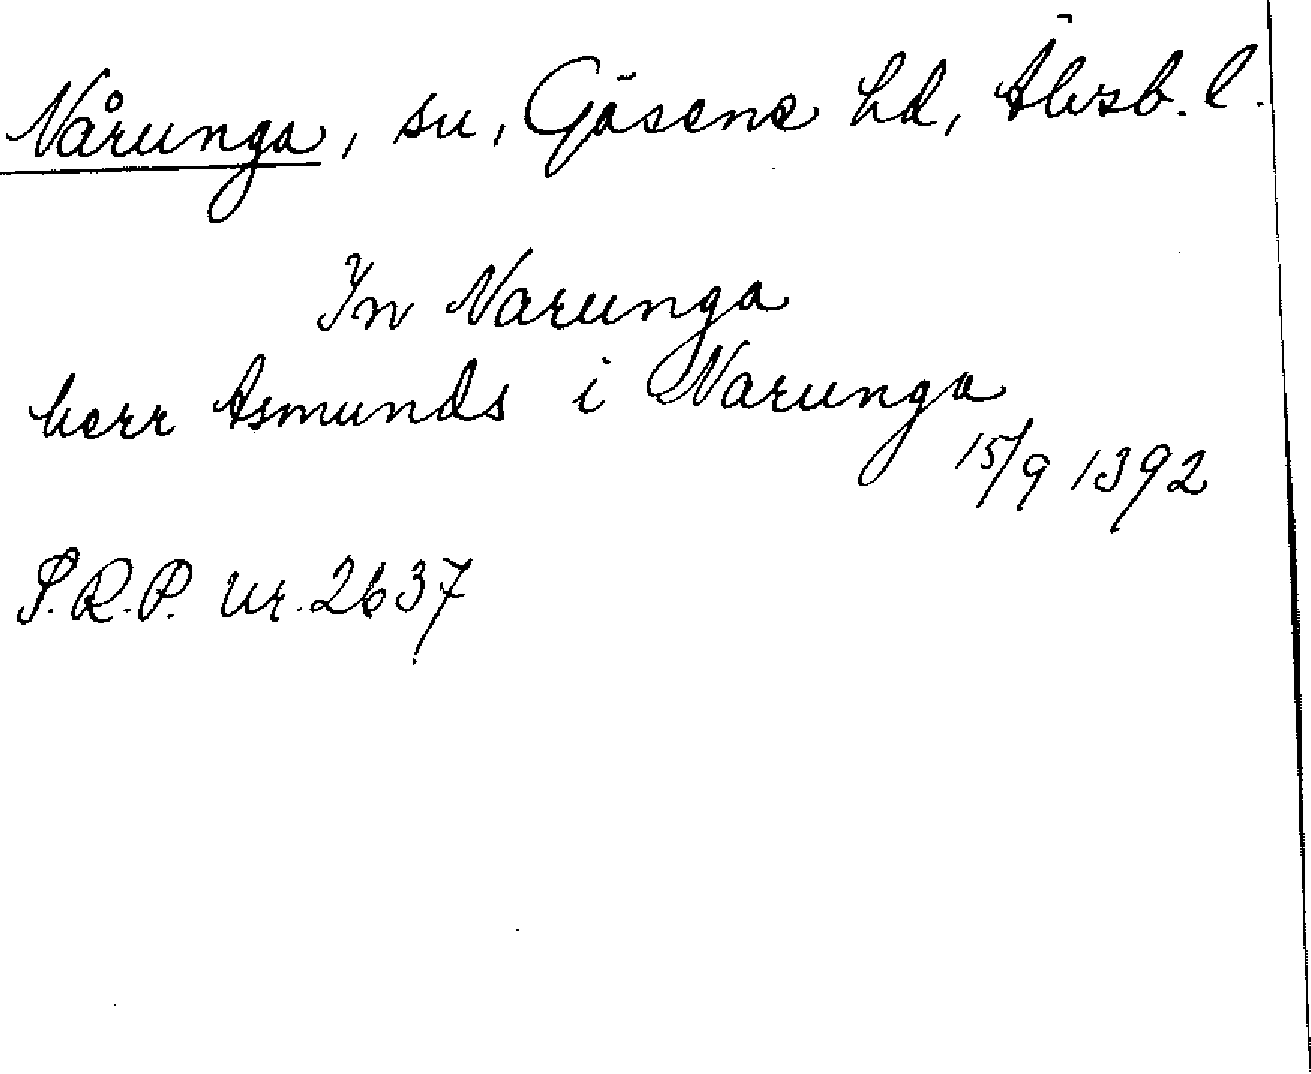 Nårunga, sn, Gäsene hd, Älvsb. l.
In Narunga
herr Asmunds i Narunga
15/9 1392
S.R.P. nr. 2637